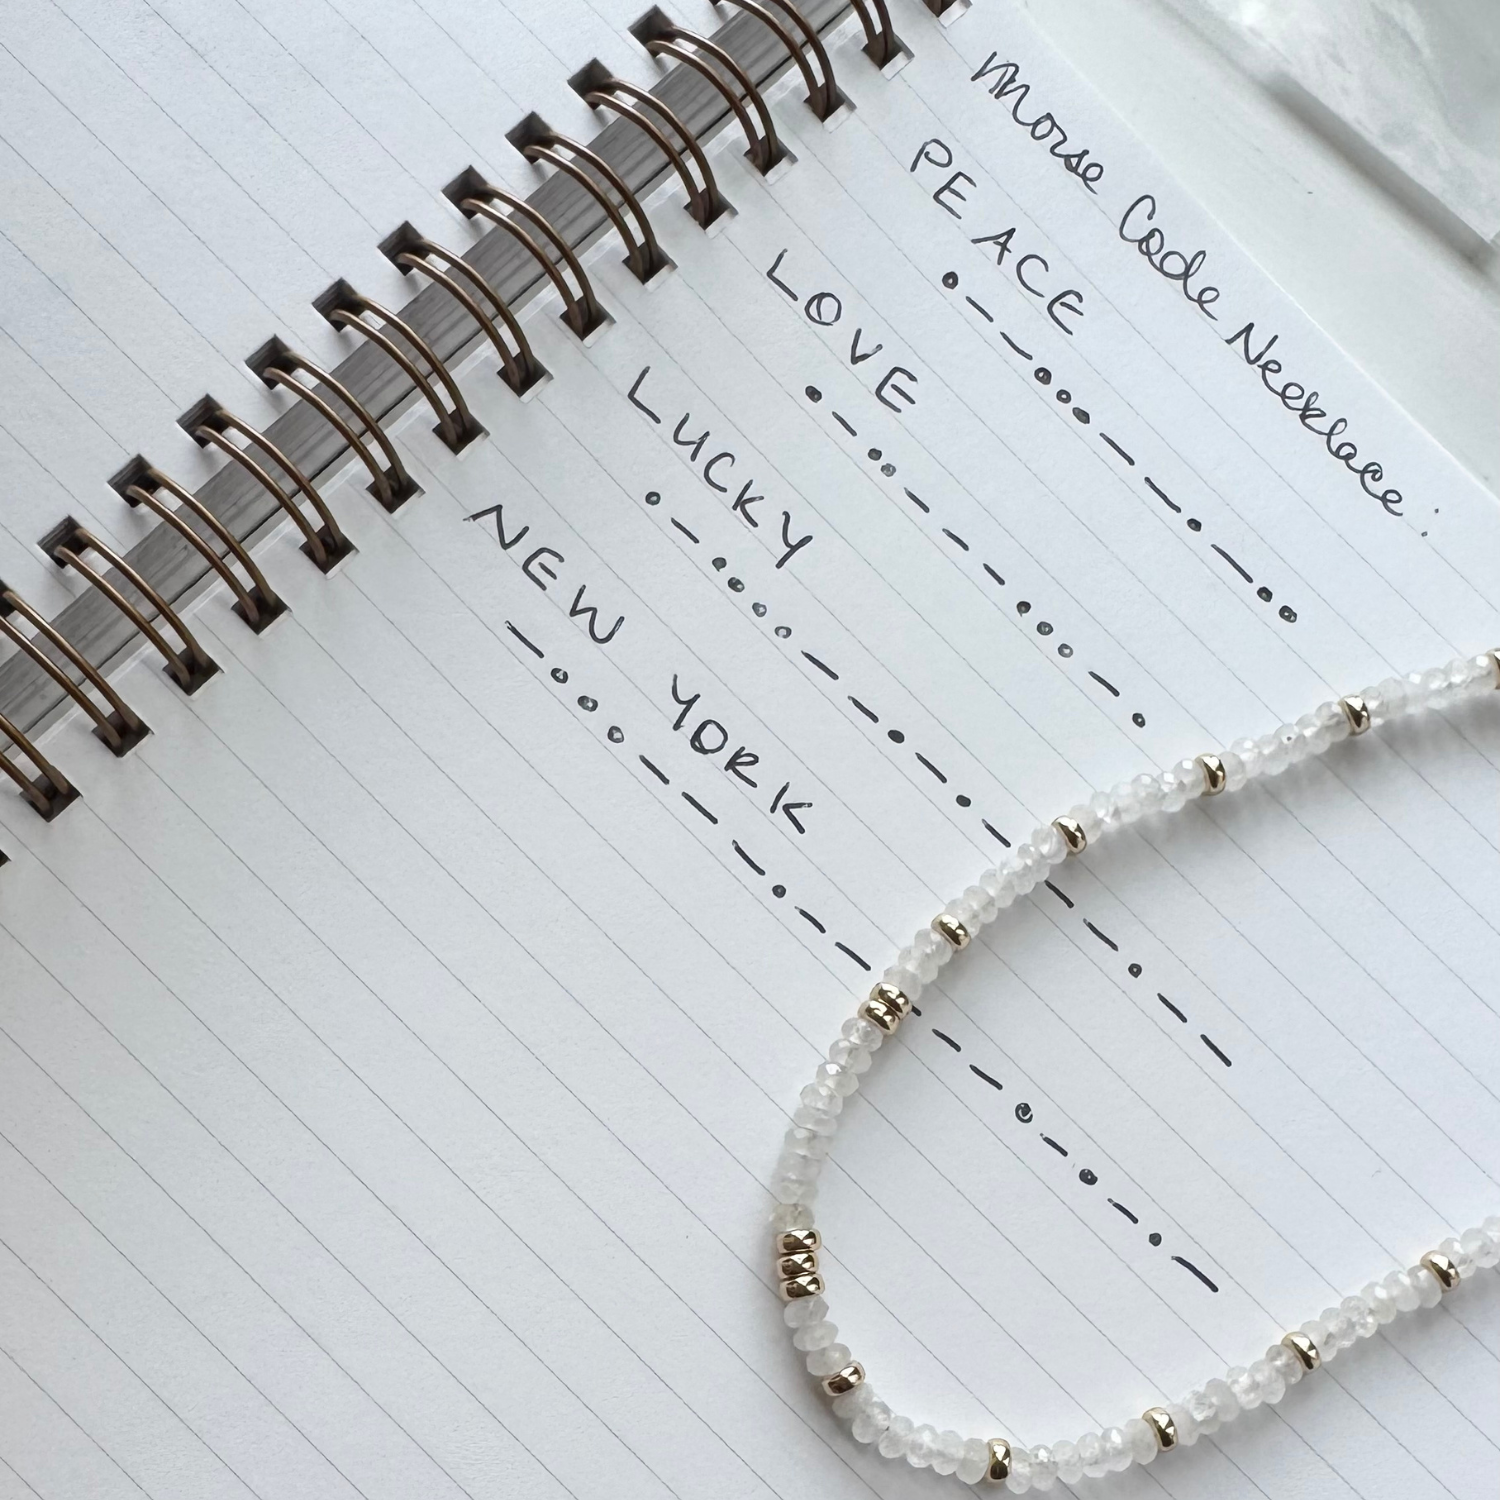 Morse Code Necklace:
PEACE
• — — • • • — — • — • •
LOVE
• — • • — — — • • • — •
LUCKY
• — • • • • — — • — • — — — • — —
NEW YORK
— • • • — — — • — — — — — • — • — • —